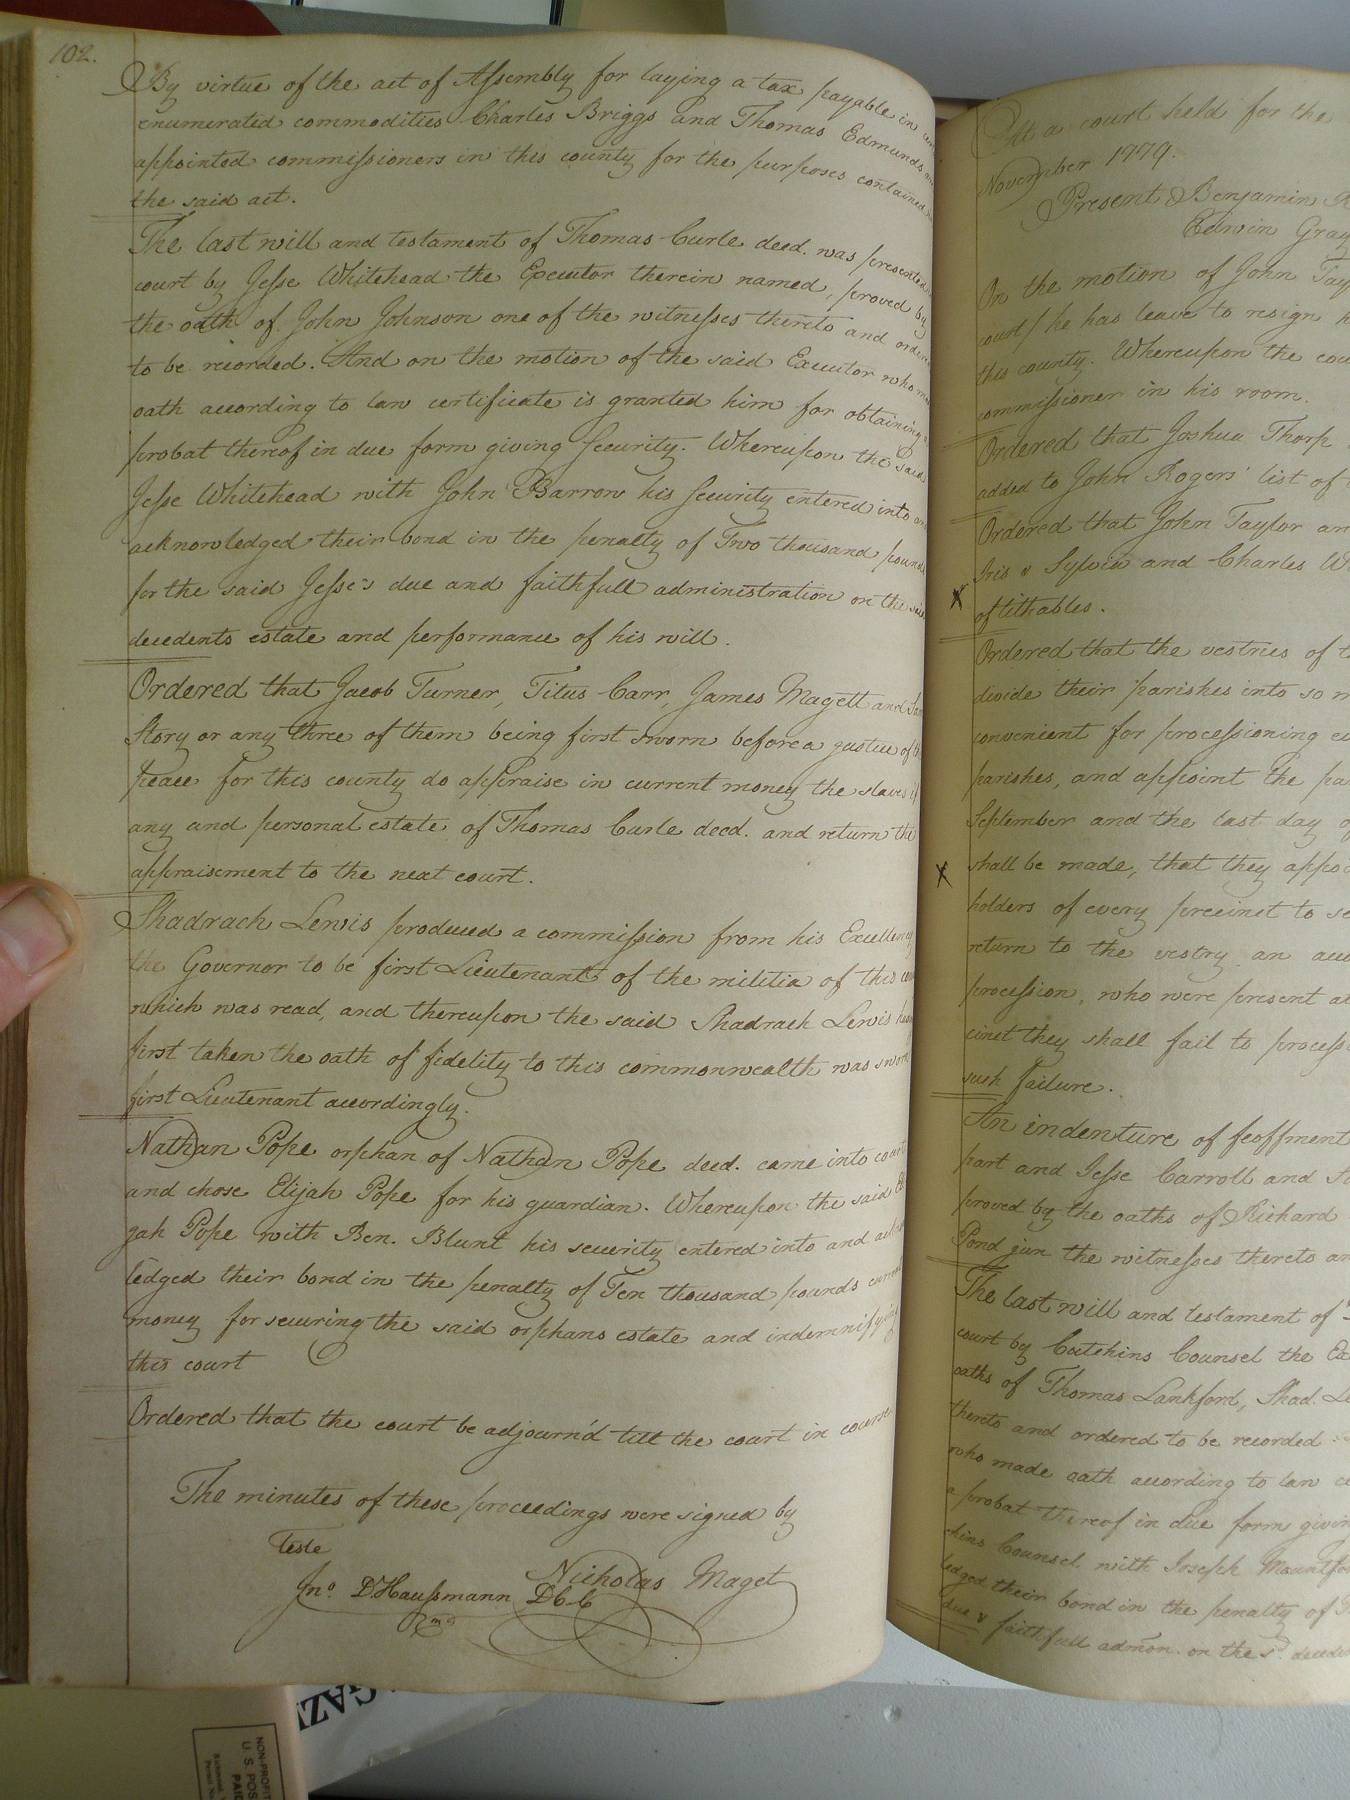 102.
By virtue of the act of Assembly for laying a tax payable in
enumerated commodities Charles Briggs and Thomas Edmunds
appointed commissioners in this county for the purposes contained
the said act.
The last will and testament of Thomas Curle deed. was presented
court by Jesse Whitehead the Executor therein named, proved by
the oath of John Johnson one of the witnesses thereto and ordered
to be recorded. And on the motion of the said Executor who
oath according to law certificate is granted him for obtaining
probat thereof in due form giving security. Whereupon the said
Jesse Whitehead with John Barrow his security entered into
acknowledged their bond in the penalty of Two thousand pounds
for the said Jesse's due and faithfull administration on the
decedents estate and performance of his will.
Ordered that Jacob Turner, Titus Carr, James Magett and
Story or any three of them being first sworn before a justice of
peace for this county do appraise in current money the slaves if
any and personal estate of Thomas Curle deed. and return the
appraisement to the next court.
Shadrach Lewis produced a commission from his Excellency
the Governor to be first Lieutenant of the militia of this
which was read, and thereupon the said Shadrach Lewis
first taken the oath of fidelity to this commonwealth was sworn
first Lieutenant accordingly.
Nathan Pope orphan of Nathan Pope deed. came into court
and chose Elijah Pope for his guardian. Whereupon the said
jah Pope with Ben. Blunt his security entered into and
ledged their bond in the penalty of Ten thousand pounds
money for securing the said orphans estate and indemnifying
this court
Ordered that the court be adjourn'd till the court in course
The minutes of these proceedings were signed by
Teste
Nicholas Maget
Jno. D'Haussmann DCC
At a court held for the
November 1779.
Present Benjamin
Edwin Gray
On the motion of John
court he has leave to resign
this county. Whereupon the
commissioner in his room.
Ordered that Joshua Thorp
added to John Rogers' list of
Ordered that John Taylor
Iris & Sylvia and Charles
of tithables.
Ordered that the vestries of
devide their parishes into so
convenient for processioning
parishes, and appoint the
September and the last day
shall be made, that they
holders of every precinct to
return to the vestry an
procession, who were present
cinct they shall fail to
such failure.
An indenture of feoffment
part and Jesse Carroll and
proved by the oaths of Richard
Pond jun the witnesses thereto
The last will and testament of
court by Cutchins Counsel the
oaths of Thomas Lankford, Shad.
thereto and ordered to be recorded
who made oath according to law
a probat thereof in due form
chins Counsel with Joseph
ledged their bond in the penalty of
due & faithfull admon. on the sd.
NON-PROFIT
PAID